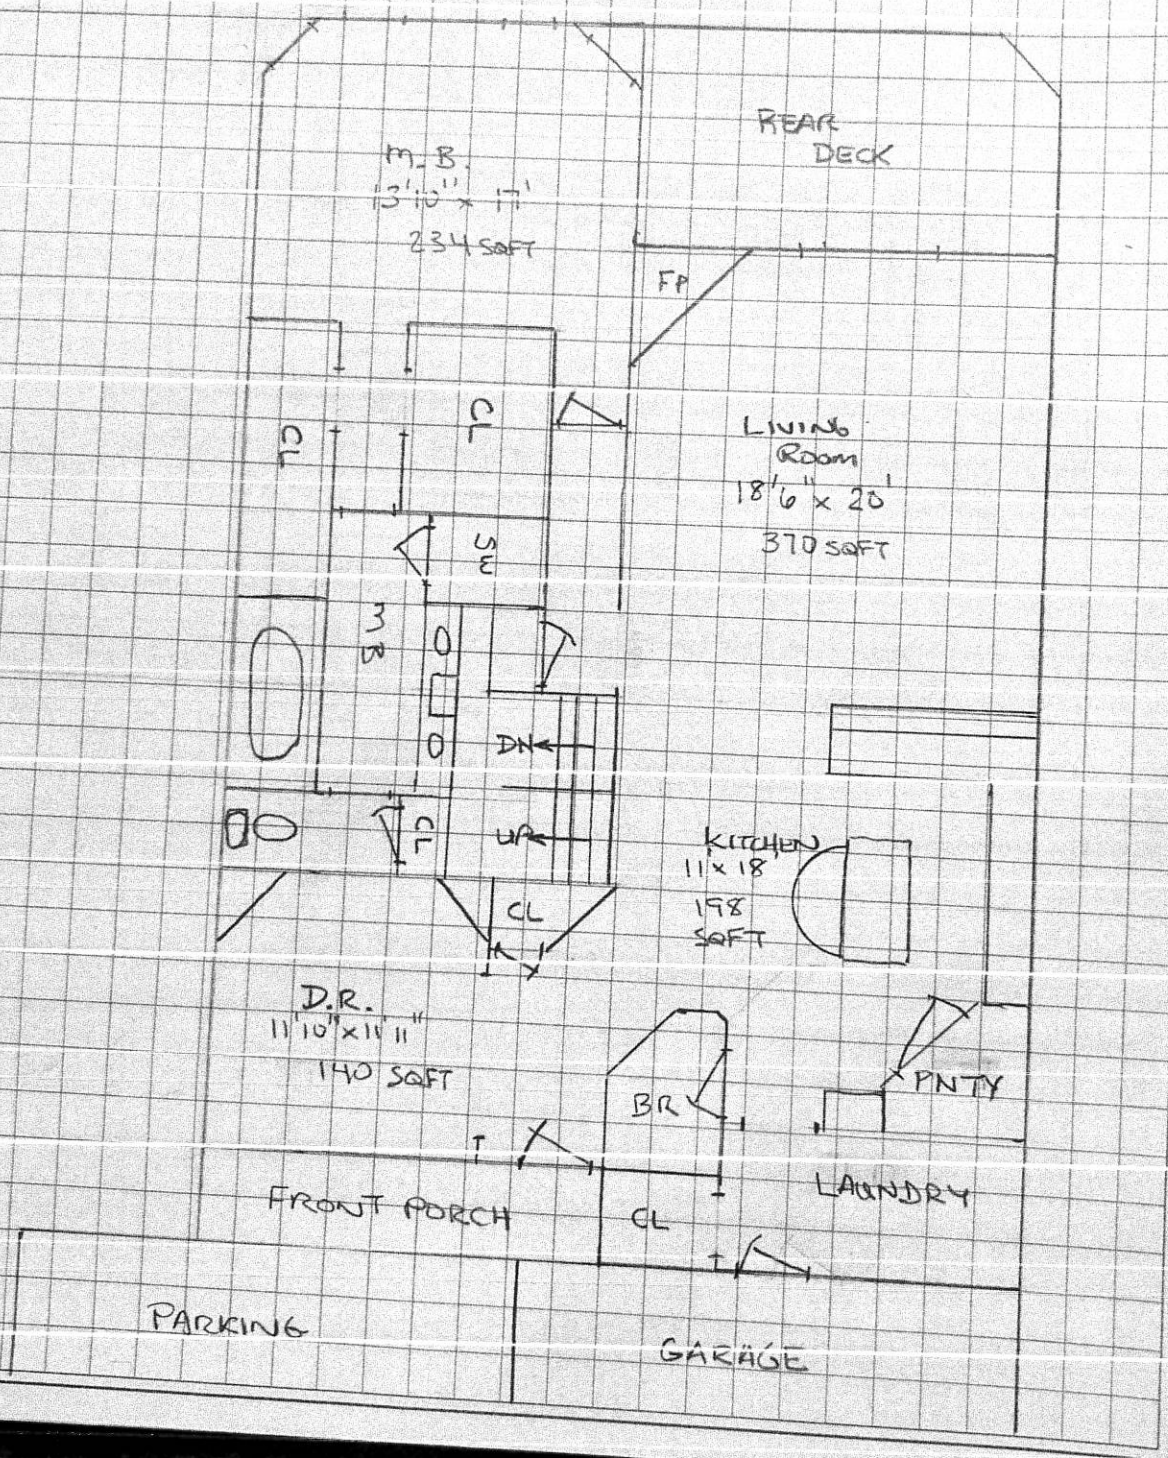 REAR
DECK
M.B.
13'10" x 17'
234 SQFT
FP
CL
CL
LIVING
ROOM
18'6" x 20'
370 SQFT
SW
MB
DN
UP
CL
KITCHEN
11 x 18
198
SQFT
CL
D.R.
11'10" x 11'11"
140 SQFT
PNTY
BR
LAUNDRY
FRONT PORCH
CL
PARKING
GARAGE